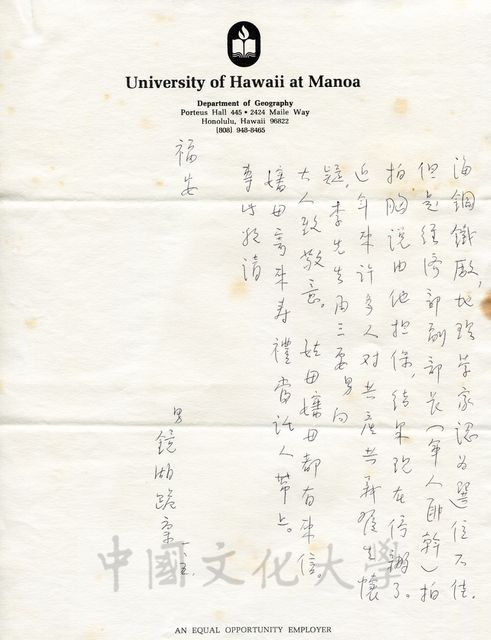 University of Hawaii at Manoa
Department of Geography
Porteus Hall 445 • 2424 Maile Way
Honolulu, Hawaii 96822
(808) 948-8465
海鋼鐵廠,地理學家認為選位不佳.
但是經濟部副部長(軍人部幹)拍
拍胸說由他担保,結果現在停辦了。
近年来許多人对共產共和發生懷
疑,李先生再三要男向
大人致敬意。姑母嬸母都有来信。
嬸母寄来寿禮當託人带上。
專此敬請
福安
男
鏡湖跪稟
中國文化大學
AN EQUAL OPPORTUNITY EMPLOYER